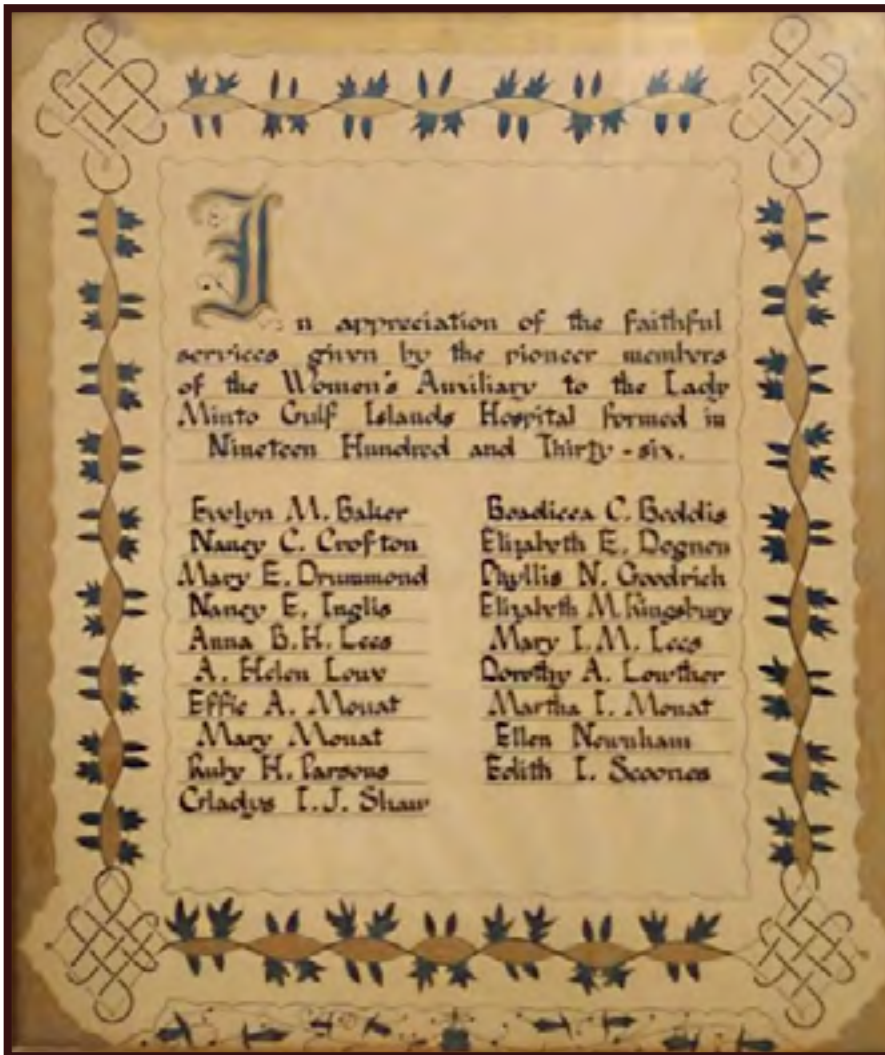 In appreciation of the faithful
services given by the pioneer members
of the Women's Auxiliary to the Lady
Minto Gulf Islands Hospital formed in
Nineteen Hundred and Thirty-six.
Evelyn M. Baker
Nancy C. Crofton
Mary E. Drummond
Nancy E. Inglis
Anna B. H. Lees
A. Helen
Effie A. Mouat
Mary Mouat
Ruby H. Parsons
Gladys I. J. Shaw
Boadicea C. Beddis
Elizabeth E. Degnen
Phyllis N. Goodrich
Elizabeth M. Kingsbury
Mary I. M. Lees
Dorothy A. Lowther
Martha I. Mouat
Ellen Newnham
Edith I. Scoones